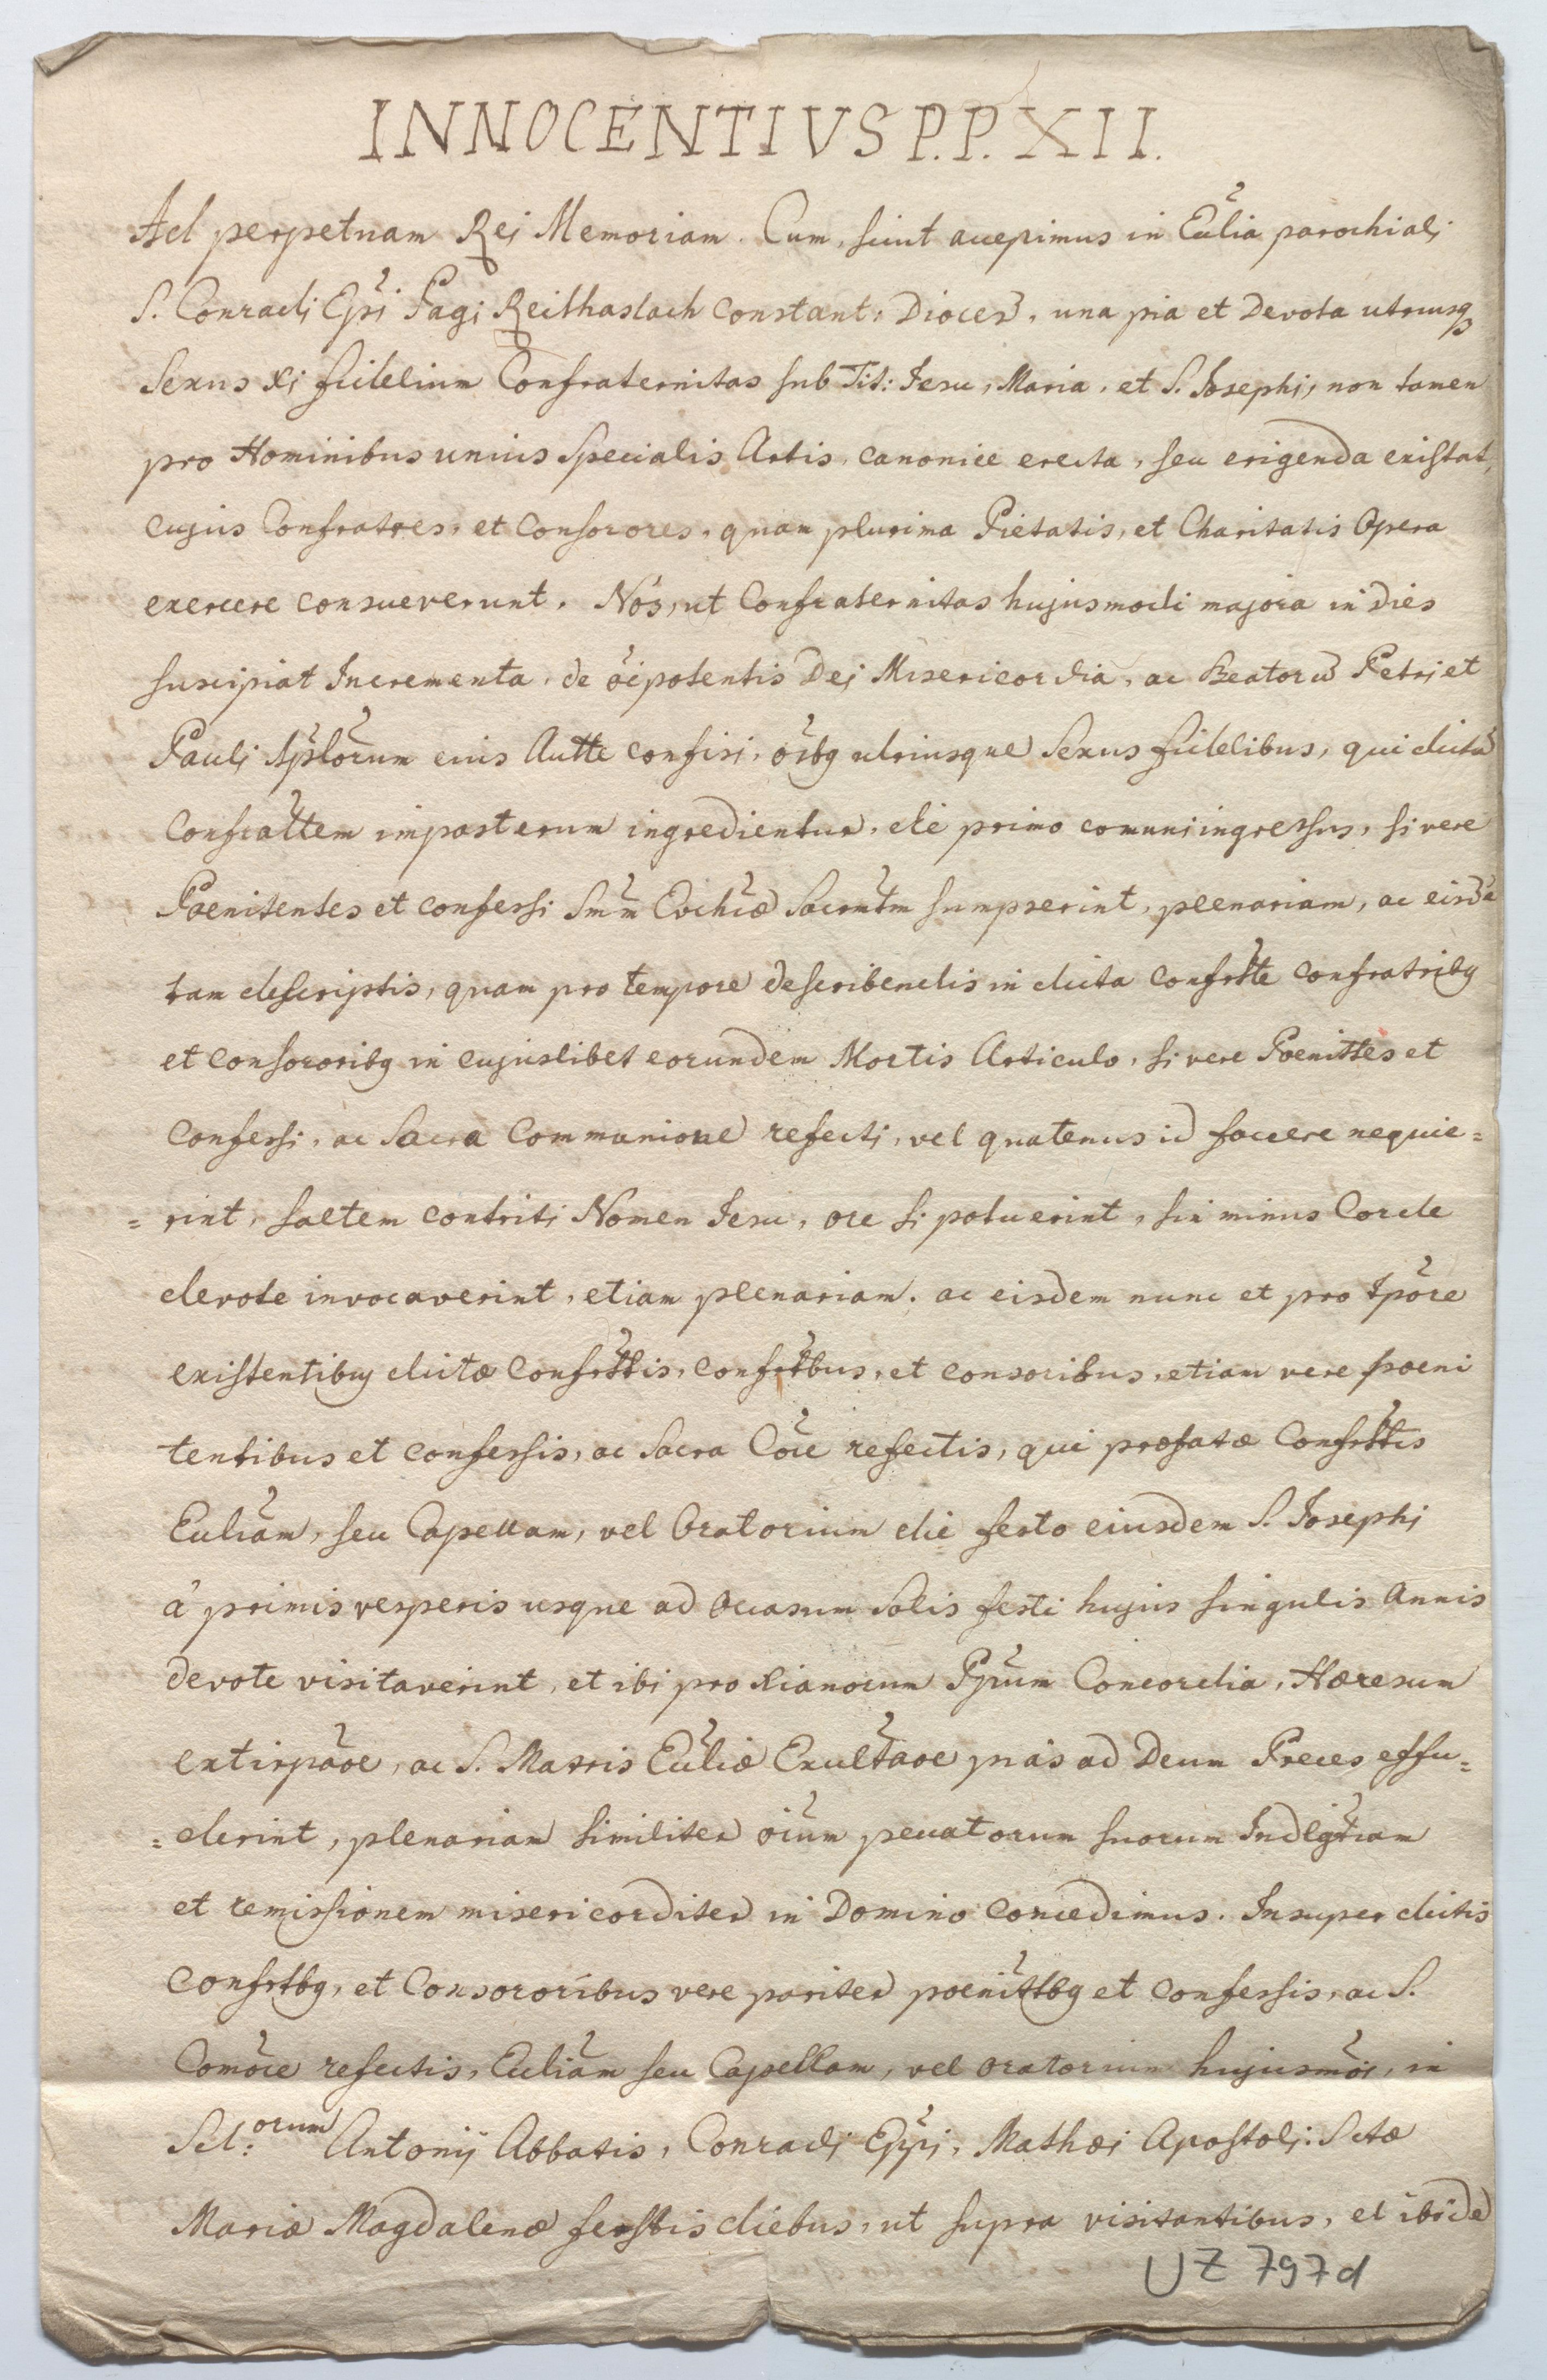 INNOCENTIVS P.P. XII.
Ad perpetuam Rei Memoriam. Cum, sicut accepimus in Ecclia parochiali
S. Conradi Epi Pagi Reithaslach Constant: Dioces, una pia et Devota utriusq
Sexus Xi fidelium Confraternitas sub Tit: Jesu, Maria, et S. Josephi, non tamen
pro Hominibus unius Specialis Artis, canonice erecta, seu erigenda existat,
cujus Confratres, et Consorores, quam plurima Pietatis, et Charitatis Opera
exercere consueverunt. Nós, ut Confraternitas hujusmodi majora in Dies
suscipiat Incrementa, de oipotentis Dei Misericordia, ac Beatorũ Petri et
Pauli Aplorum eius Autte confisi, oibg utriusque Sexus fidelibus, qui dictã
Confrattem imposterum ingredientur, die primo comuni ingressus, si vere
Poenitentes et confessi Smum Evchiæ Sacrmtm sumpserint, plenariam, ac eisdẽ
tam descriptis, quam pro tempore describendis in dicta Confrtte confratribg
et consororibg in cujuslibet eorundem Mortis Articulo, si vere Poenittes et
confessi, ac Sacra Communione refecti, vel quatenus id facere nequie=
= rint, saltem contriti Nomen Jesu, ore si potuerint, sin minus Corde
devote invocaverint, etiam plenariam. ac eisdem nunc et pro tpore
existentibg dictæ Confrttis, confrtbus, et consoribus, etiam vere poeni
tentibus et confessis, ac Sacra Coie refectis, qui præfatæ Confrttis
Eccliam, seu Capellam, vel Oratorium die festo eiusdem S. Josephi
á primis vesperis usque ad Occasum Solis festi hujus singulis Annis
devote visitaverint, et ibi pro Xianorum Ppium Concordia, Hæresum
extirpaoe, ac S. Matris Eccliæ Exultaoe pias ad Deum Preces effu=
= derint, plenariam similiter oium peccatorum suorum Indlgtiam
et remissionem misericorditer in Domino concedimus. Insuper dictis
confrtbg, et Consororibus vere pariter poenittbg et confessis, ac S.
Comoie refectis, Eccliam seu Capellam, vel oratorium hujusmoi, in
Sct:orum Antonij Abbatis, Conradi Eppi, Mathæi Apostoli: Sctæ
Mariæ Magdalenæ festis diebus, ut supra visitantibus, et ibidẽ
UZ 797d